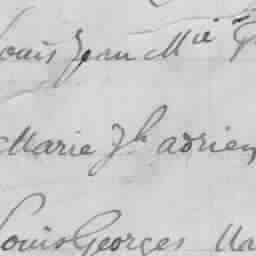 Louis Jean Mie
Marie Jh adrien
Louis Georges Ma